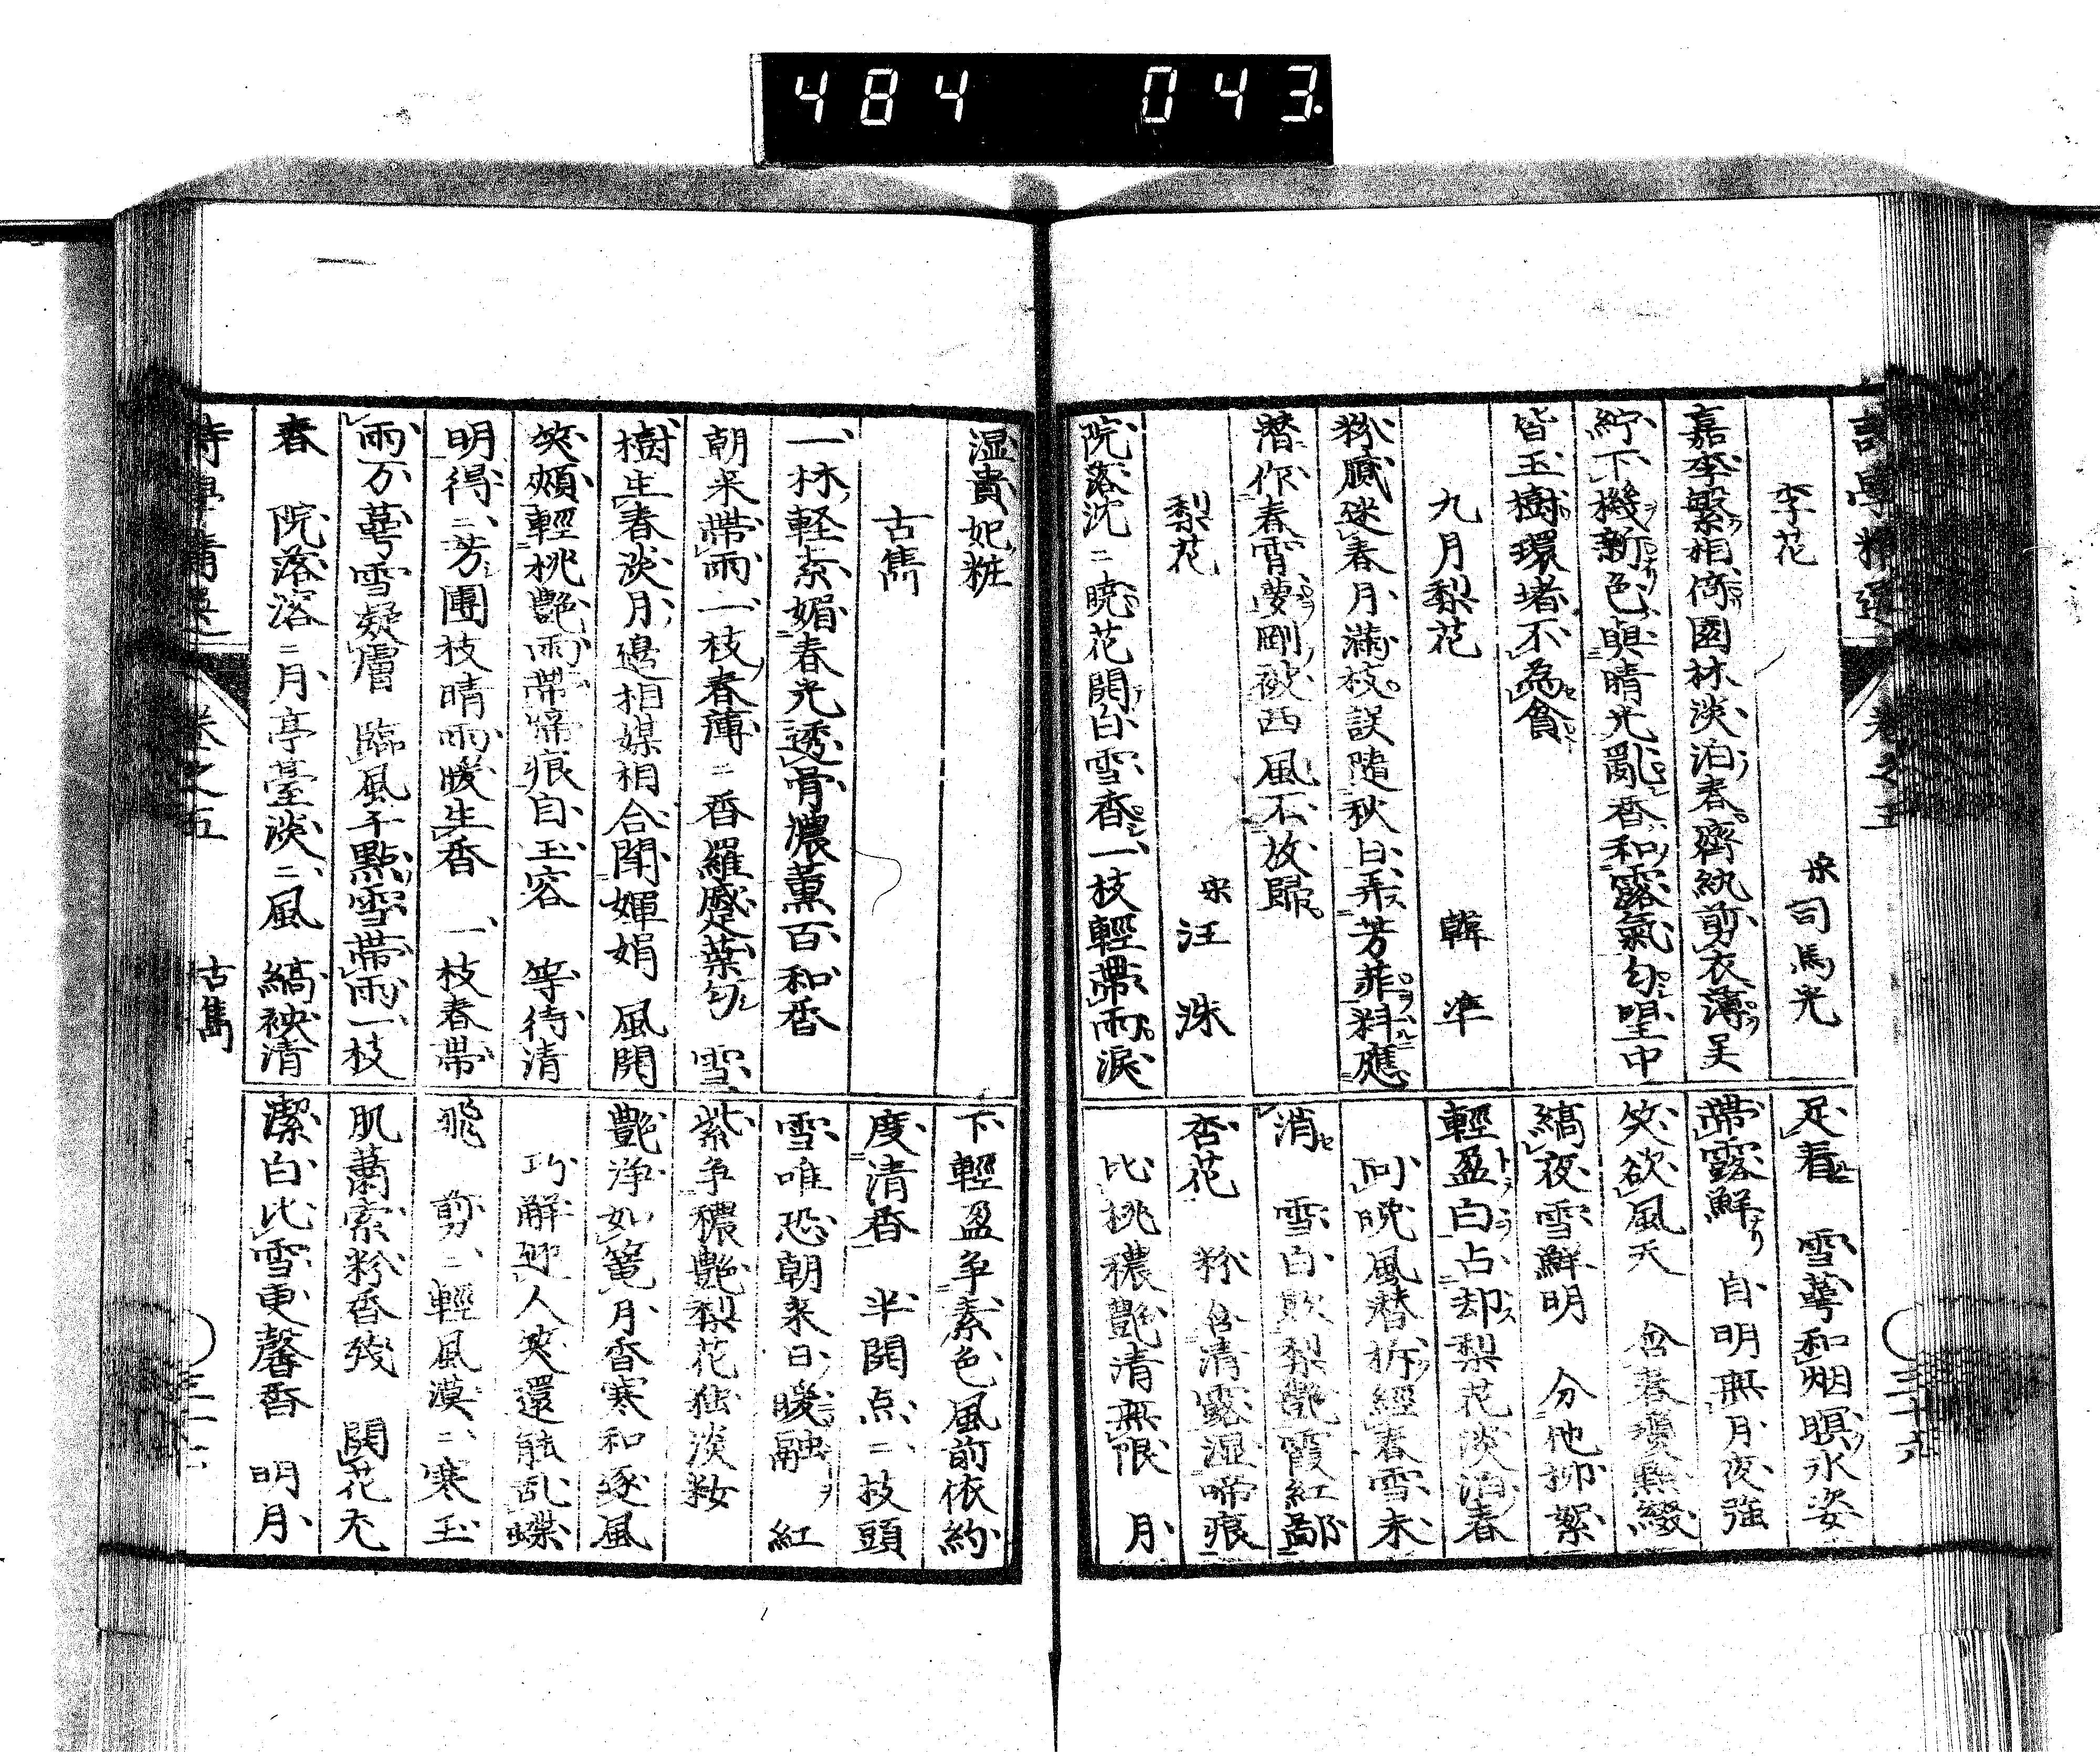 484 043
卷之五
李花
宋司馬光
嘉李繁相倚園林淡泊春齊紈剪衣薄吴
紵下機新色與晴光亂香和露氣匀望中
皆玉樹環堵不為貧
九月梨花
韓準
粉膩迷春月滿枝誤隨秋日弄芳菲料應
潜作春宵夢剛被西風不放歸
梨花
宋汪洙
院落沈二暁花開白雪香一枝輕帶雨淚
足看 雪萼和烟暝氷姿
帶露鮮 自明無月夜強
笑欲風天 含春瓊㸃綴
縞夜雪鮮明 分他柳絮
輕盈白占却梨花淡泊春
向晩風替拆經春雪未
消 雪白欺梨艶霞紅鄙
杏花 粉含清露湿啼痕
比桃穠艶清無限 月
三十六
湿貴妃粧
古雋
一林軽素媚春光透骨濃薫百和香
朝来帶雨一枝春薄二香羅蹙葉匀 雪
樹生春淡月邉相媒相合闘嬋娟 風開
笑頰輕桃艶雨帶啼痕自玉容 等待清
明得二芳團枝晴雨暖生香 一枝春帶
雨万萼雪凝膚 臨風千點雪帶雨一枝
春 院落溶二月亭臺淡二風 縞袂清
下輕盈争素色風前依約
度清香 半開点二枝頭
雪唯恐朝来日暖融 紅
紫争穠艶梨花独淡妝
艶浄如篭月香寒和逐風
巧解迎人笑還能乱蝶
飛 剪二輕風漠二寒玉
肌蕭索粉香残 開花无
潔白比雪更馨香 明月
卷之五
古雋